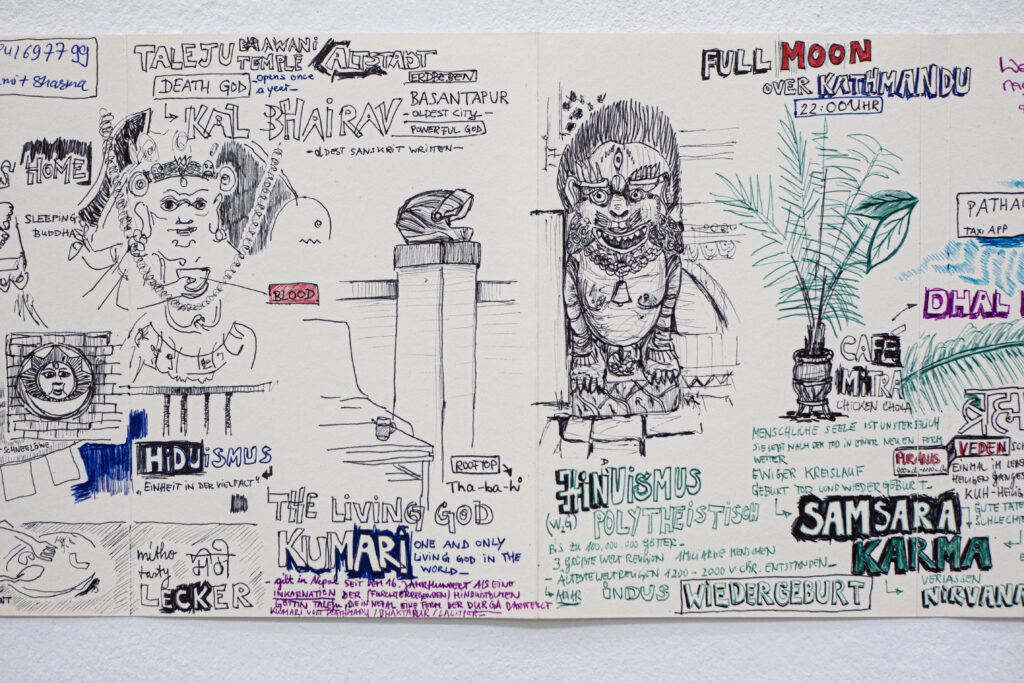 697799
Sharma
TALEJU BHAWANI
TEMPLE
ALTSTADT
ERDBEBEN
DEATH GOD
opens once
a year
KAL BHAIRAV
BASANTAPUR
- OLDEST CITY -
POWERFUL GOD
- OLDEST SANSKRIT WRITTEN -
HOME
SLEEPING
BUDDHA
BLOOD
SCHNEELÖWE
HIDUISMUS
"EINHEIT IN DER VIELFALT"
ROOFTOP
Tha-ba-hi
THE LIVING GOD
KUMARI
ONE AND ONLY
LIVING GOD IN THE
WORLD
gibt in Nepal SEIT DEM 16. JAHRHUNDERT ALS EINE
INKARNATION DER (FURCHTERREGENDEN) HINDUISTISCHEN
GÖTTIN TALEJU, DIE IN NEPAL EINE FORM DER DURGA DARSTELLT
KUMARI VON KATHMANDU / BHAKTAPUR / LALITPUR
mitho
tasty
मीठो
LECKER
FULL MOON
OVER KATHMANDU
22:00 UHR
PATHAO
TAXI APP
DHAL
CAFE
MITRA
CHICKEN CHOLA
MENSCHLICHE SEELE IST UNSTERBLICH
SIE LEBT NACH DEM TOD IN EINER NEUEN FORM
WEITER
EWIGER KREISLAUF
GEBURT TOD UND WIEDERGEBURT
PURANAS
VEDEN
EINMAL IM LEBEN
HEILIGEN GANGES
KUH-HEILIG
HINDUISMUS
POLYTHEISTISCH
BIS ZU 100.000.000 GÖTTER
3 GRÖßTE WELTRELIGION 1 MILLIARDE MENSCHEN
ÄLTESTE WELTRELIGION 1200 - 2000 V. CHR. ENTSTANDEN
INDUS
WIEDERGEBURT
SAMSARA
KARMA
GUTE TATEN
SCHLECHTE
VERLASSEN
NIRVANA